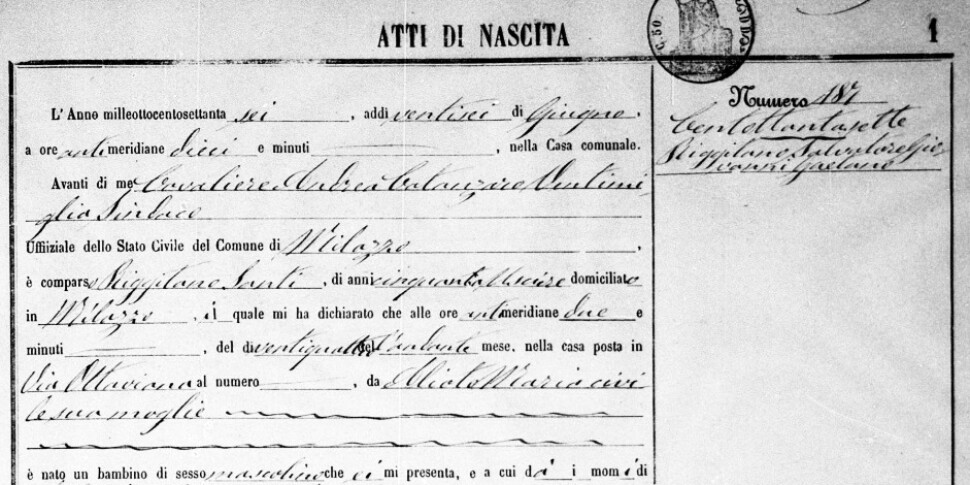 ATTI DI NASCITA
1
C. 50
Numero 187
Centottantasette
Riggitano Salvatore Gio
vanni Gaetano
L'Anno milleottocentosettanta sei, addì ventisei di Giugno,
a ore antimeridiane dieci e minuti, nella Casa comunale.
Avanti di me Cavaliere Andrea Catanzaro Ventimi
glia Sindaco
Uffiziale dello Stato Civile del Comune di Milazzo,
è comparso Riggitano Santi, di anni cinquanta, Usciere domiciliato
in Milazzo, il quale mi ha dichiarato che alle ore antimeridiane due e
minuti, del dì ventiquattro del l'andante mese, nella casa posta in
Via Ottaviana al numero, da Maria civi
le sua moglie
è nato un bambino di sesso mascolino che ei mi presenta, e a cui dà i nomi di